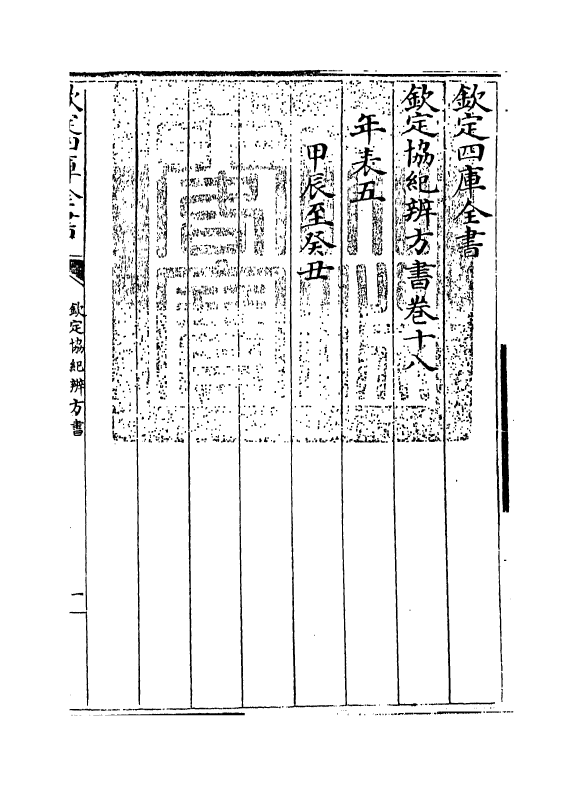 欽定四庫全書
欽定協紀辨方書卷十八
年表五
甲辰至癸丑
欽定四庫全書
欽定協紀辨方書
一